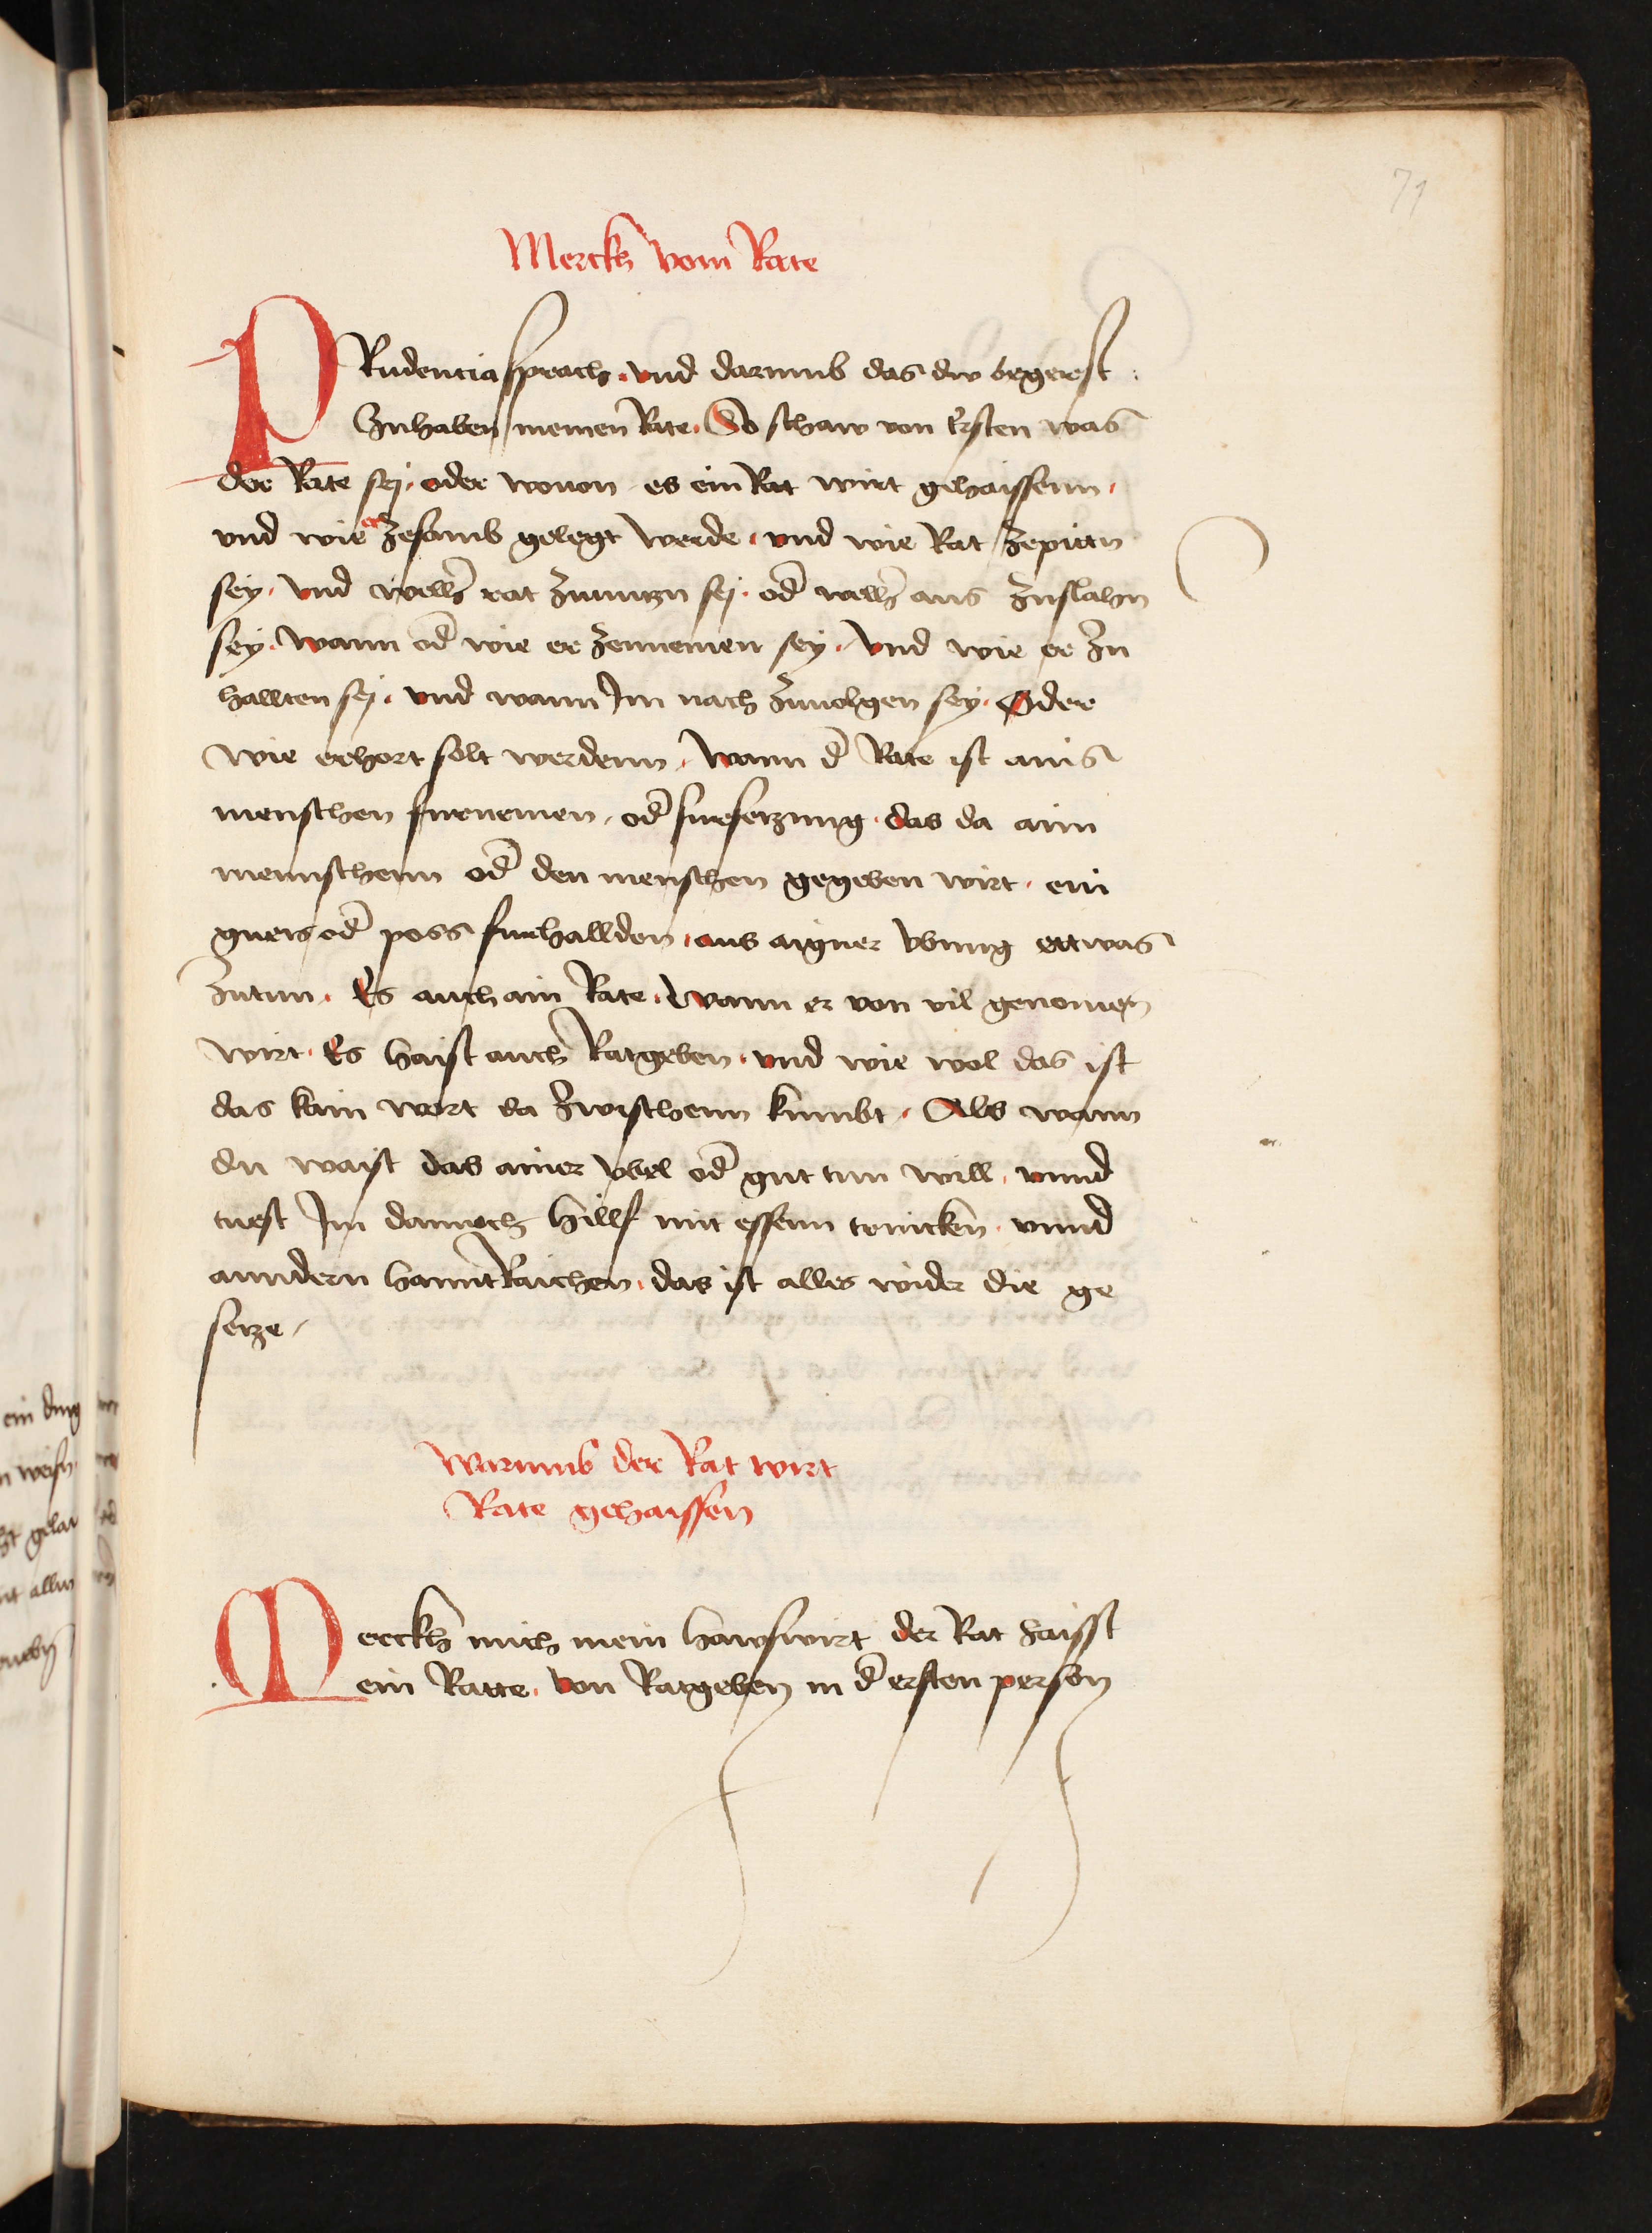 71
Merckh vom Rate
PRudencia sprach. vnd darumb das dw begerst
Zuhaben meinen Rate. So schaw von Ersten was
der Rate sej. oder wouon es ein Rat wirt gehaissenn.
vnd wie er zesamb gelegt werde. vnd wie Rat zepittn
sey. vnd welh̄ rat zunutzn sej. od̄ welh̄ aus zuslahn
sey. wann od̄ wie er zennemen sey. vnd wie er zu
hallten sej. vnd wann Jm nach zuuolgen sey. Oder
wie erhort solt werdenn. wann d̄ Rate ist ains
menschen furnemen. od̄ fursetzung. das da aim
mennschenn od̄ den menschen gegeben wirt. ein
guets od̄ poss furhallden. aus aigner vbung ettwas
zutun. Es auch ain Rate. wann er von vil genomen
wirt. Es haist auch Ratgeben. vnd wie wol das ist
das kain wort da zwischenn kumbt. Als wann
du waist das ainer vbel od̄ gut tun will. vnnd
tuest Jm dannoch hillf mit essenn trincken. vnnd
anndern hanntRaichen. das ist alles wider die ge
setze.
Warumb der Rat wirt
Rate gehaissen
Merckh mich mein hawswirt der Rat haisst
ein Ratte. von Ratgeben in d̄ ersten person
ein ding
n weisn